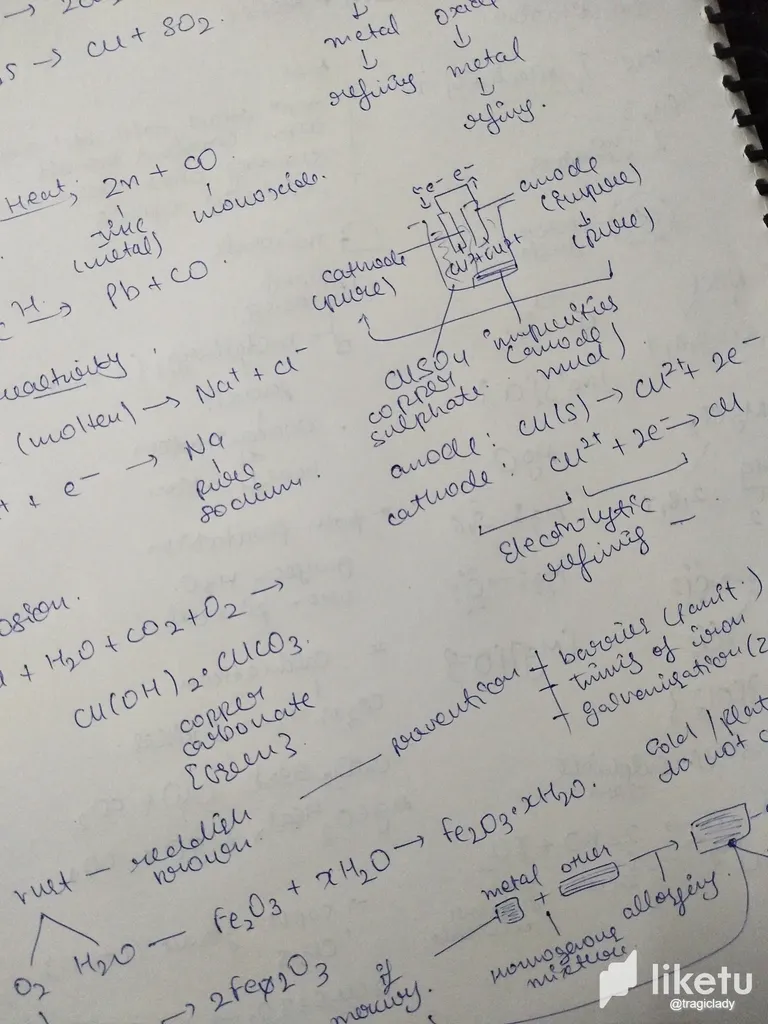 → CU + SO2.
↓ ↓
metal oxide
↓ ↓
refining metal
↓
refining.
Heat; Zn + CO
zinc monoxide.
(metal)
H → Pb + CO
reactivity.
(molten) → Na+ + Cl-
+ e- → Na
pure
sodium.
e- e-
anode
(impure)
↓
(pure)
cathode
(pure)
CU2+ CU2+
CUSO4
copper
sulphate
impurities
(anode
mud)
anode: CU(S) → CU2+ + 2e-
cathode: CU2+ + 2e- → CU
Electrolytic
refining
+ H2O + CO2 + O2 →
CU(OH)2.CUCO3.
copper
carbonate
{Green}.
prevention
barrier (paint.)
galvanisation
Gold / plat
do not
rust — reddish
brown.
O2 H2O — Fe2O3 + xH2O → Fe2O3.xH2O.
→ 2Fe2O3
metal + other
alloying.
homogenous
mixture
if
mercury.
liketu
@tragiclady